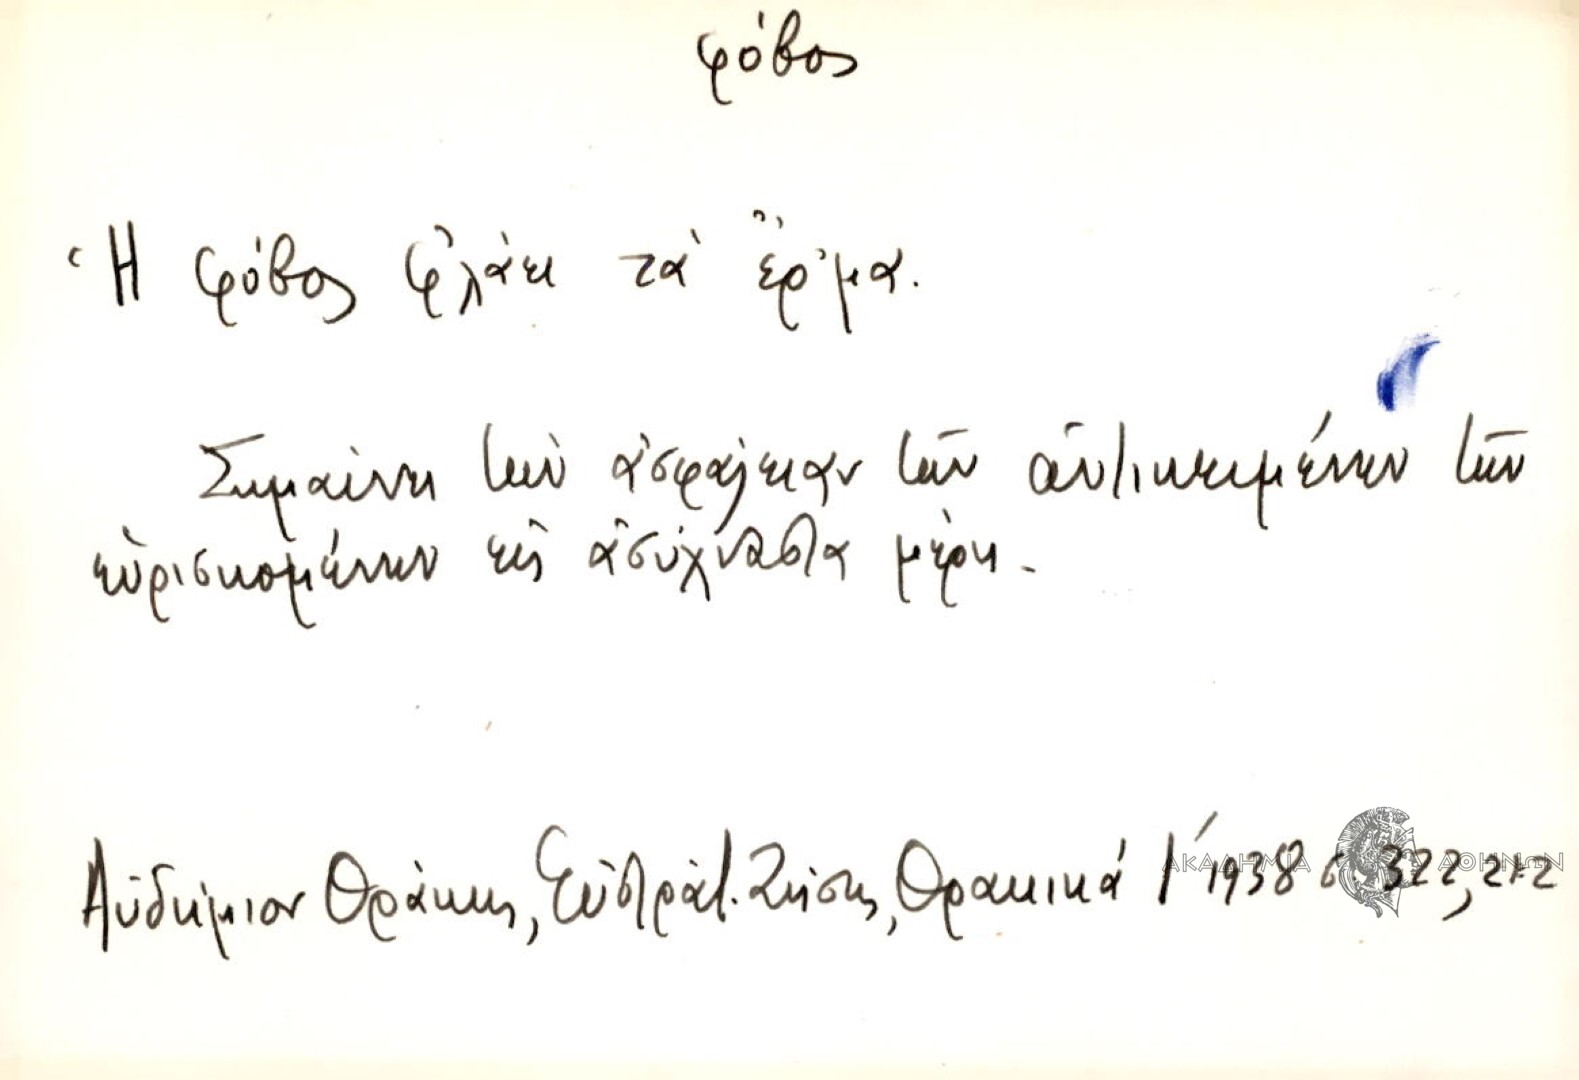 φόβος
Ἡ φόβος φ'λάει τὰ ἔρ'μα.
Σημαίνει τὴν ἀσφάλειαν τῶν ἀντικειμένων τῶν
εὑρισκομένων εἰς ἀσύχναστα μέρη.
Αὐδήμιον Θράκης, Εὐστράτ. Ζήσης, Θρακικά 1938 σ. 322, 272
ΑΚΑΔΗΜΙΑ ΑΘΗΝΩΝ